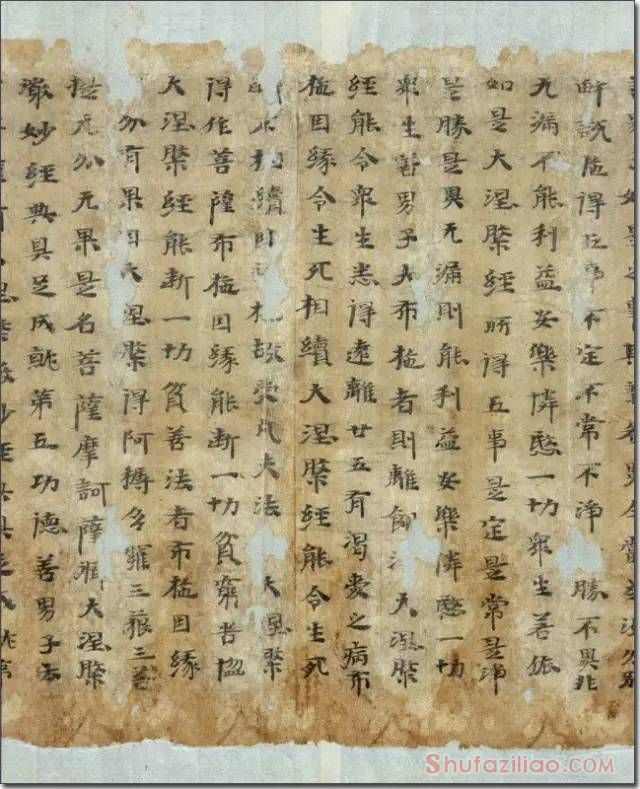 說施得五事不定不常不淨勝不異非
无漏不能利益安樂憐愍一切眾生若依
如是大涅槃經所得五事是定是常是淨
是勝是異无漏則能利益安樂憐愍一切
眾生善男子夫布施者則離飢大涅槃
經能令眾生悉得遠離廿五有渴愛之病布
施因緣令生死相續大涅槃經能令生死
不相續因施故受凡夫法大涅槃
得作菩薩布施因緣能斷一切貧窮苦惱
大涅槃經能斷一切貧善法者布施因緣
分有果因大涅槃得阿耨多羅三藐三菩
提无分无果是名菩薩摩訶薩脩大涅槃
微妙經典具足成就第五功德善男子云
Shufaziliao.com